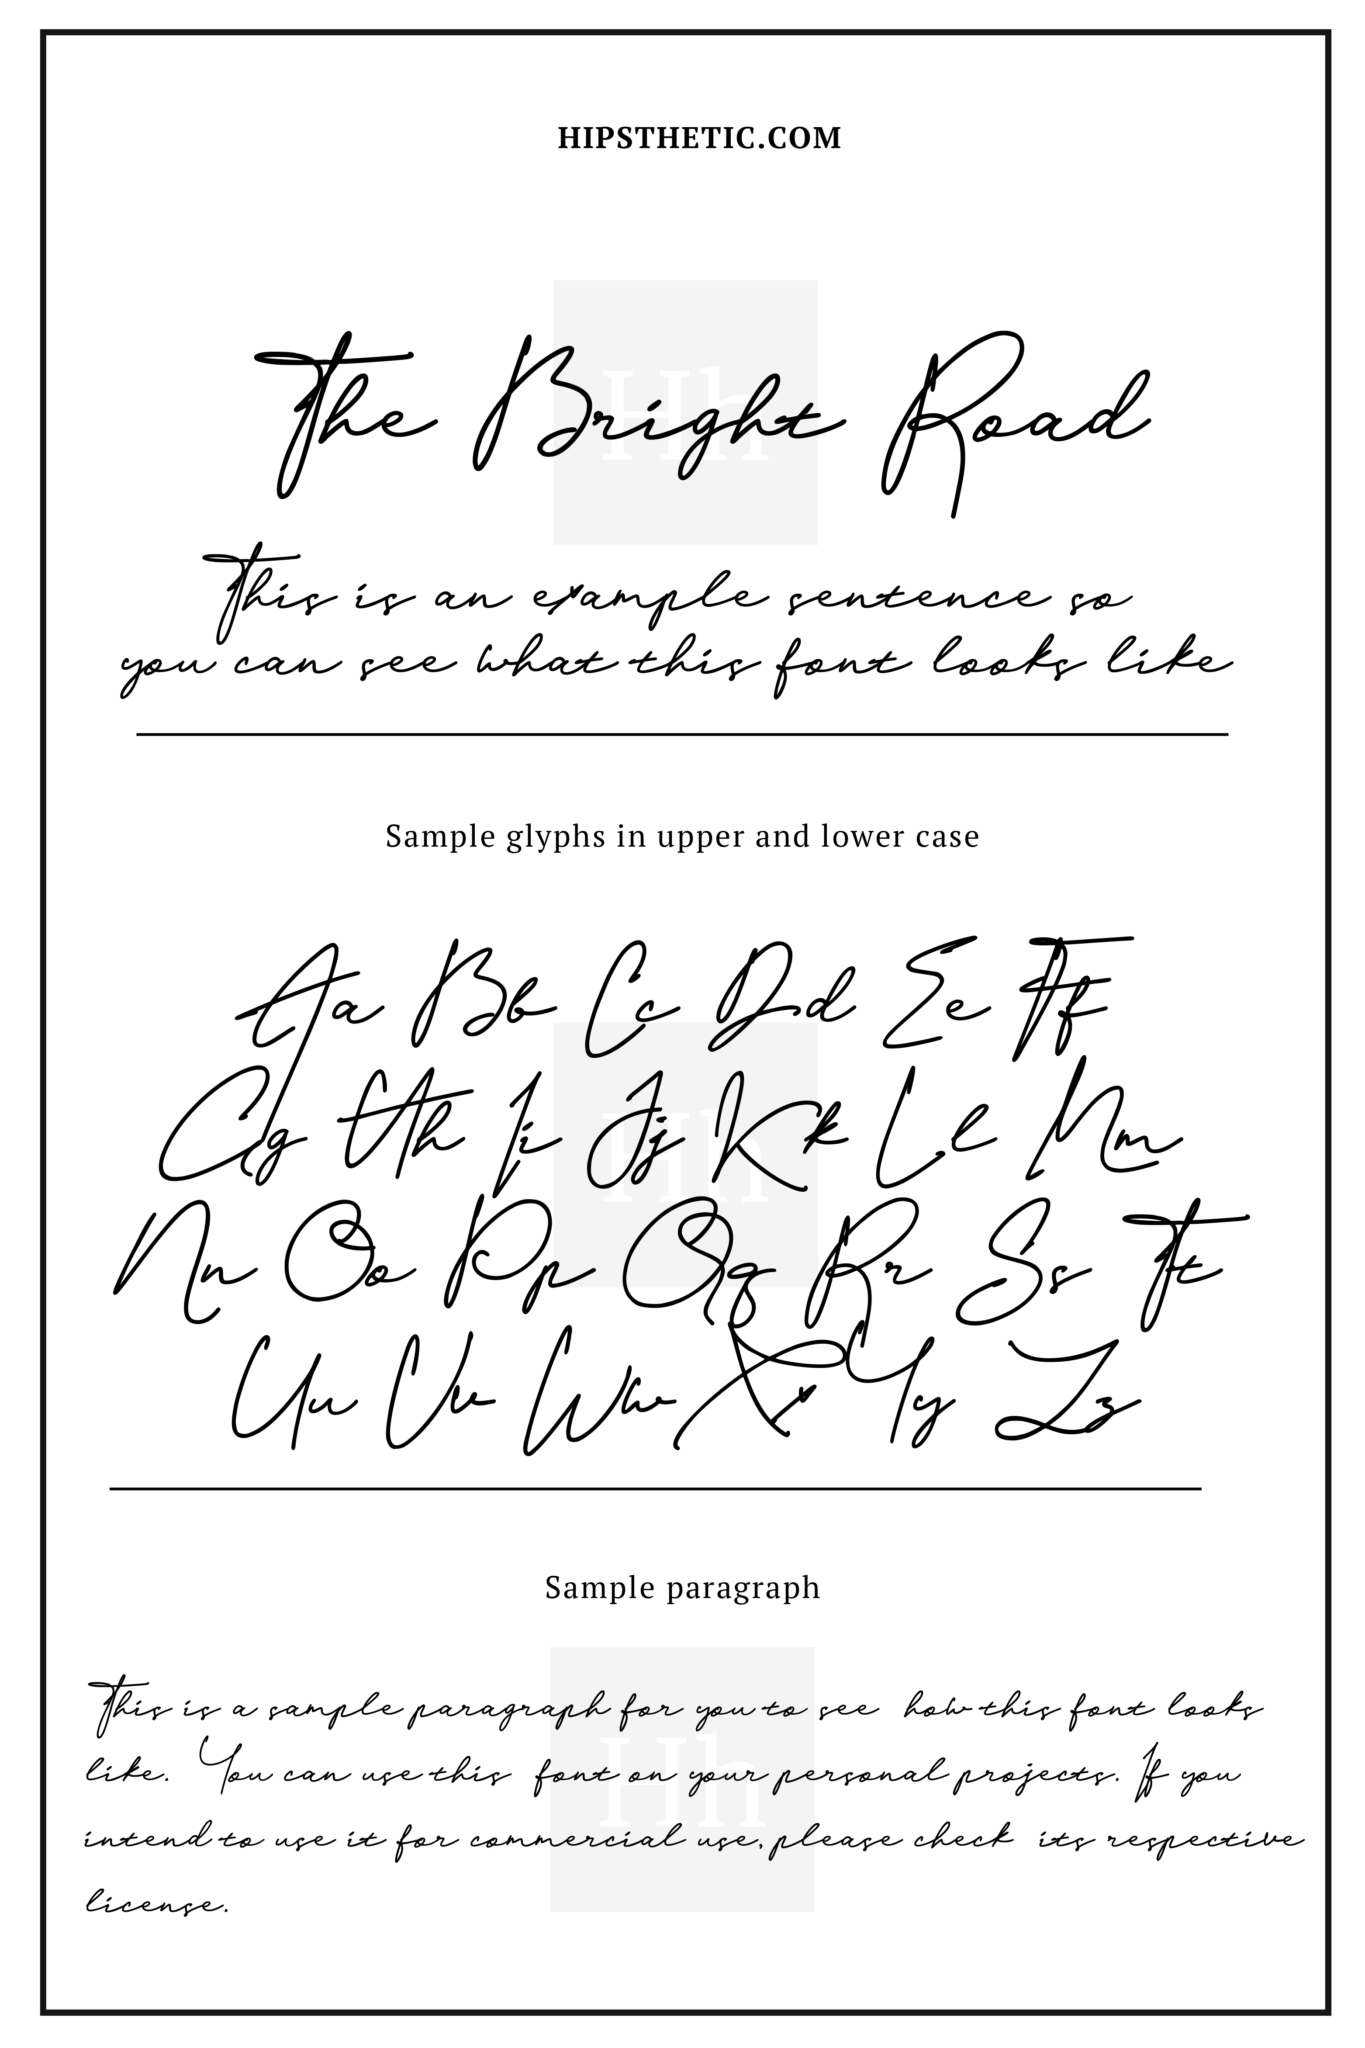 HIPSTHETIC.COM
The Bright Road
This is an example sentence so
you can see what this font looks like
Sample glyphs in upper and lower case
Aa Bb Cc Dd Ee Ff
Gg Hh Ii Jj Kk Ll Mm
Nn Oo Pp Qq Rr Ss Tt
Uu Vv Ww Xx Yy Zz
Sample paragraph
This is a sample paragraph for you to see how this font looks
like. You can use this font on your personal projects. If you
intend to use it for commercial use, please check its respective
license.
Hh
Hh
Hh